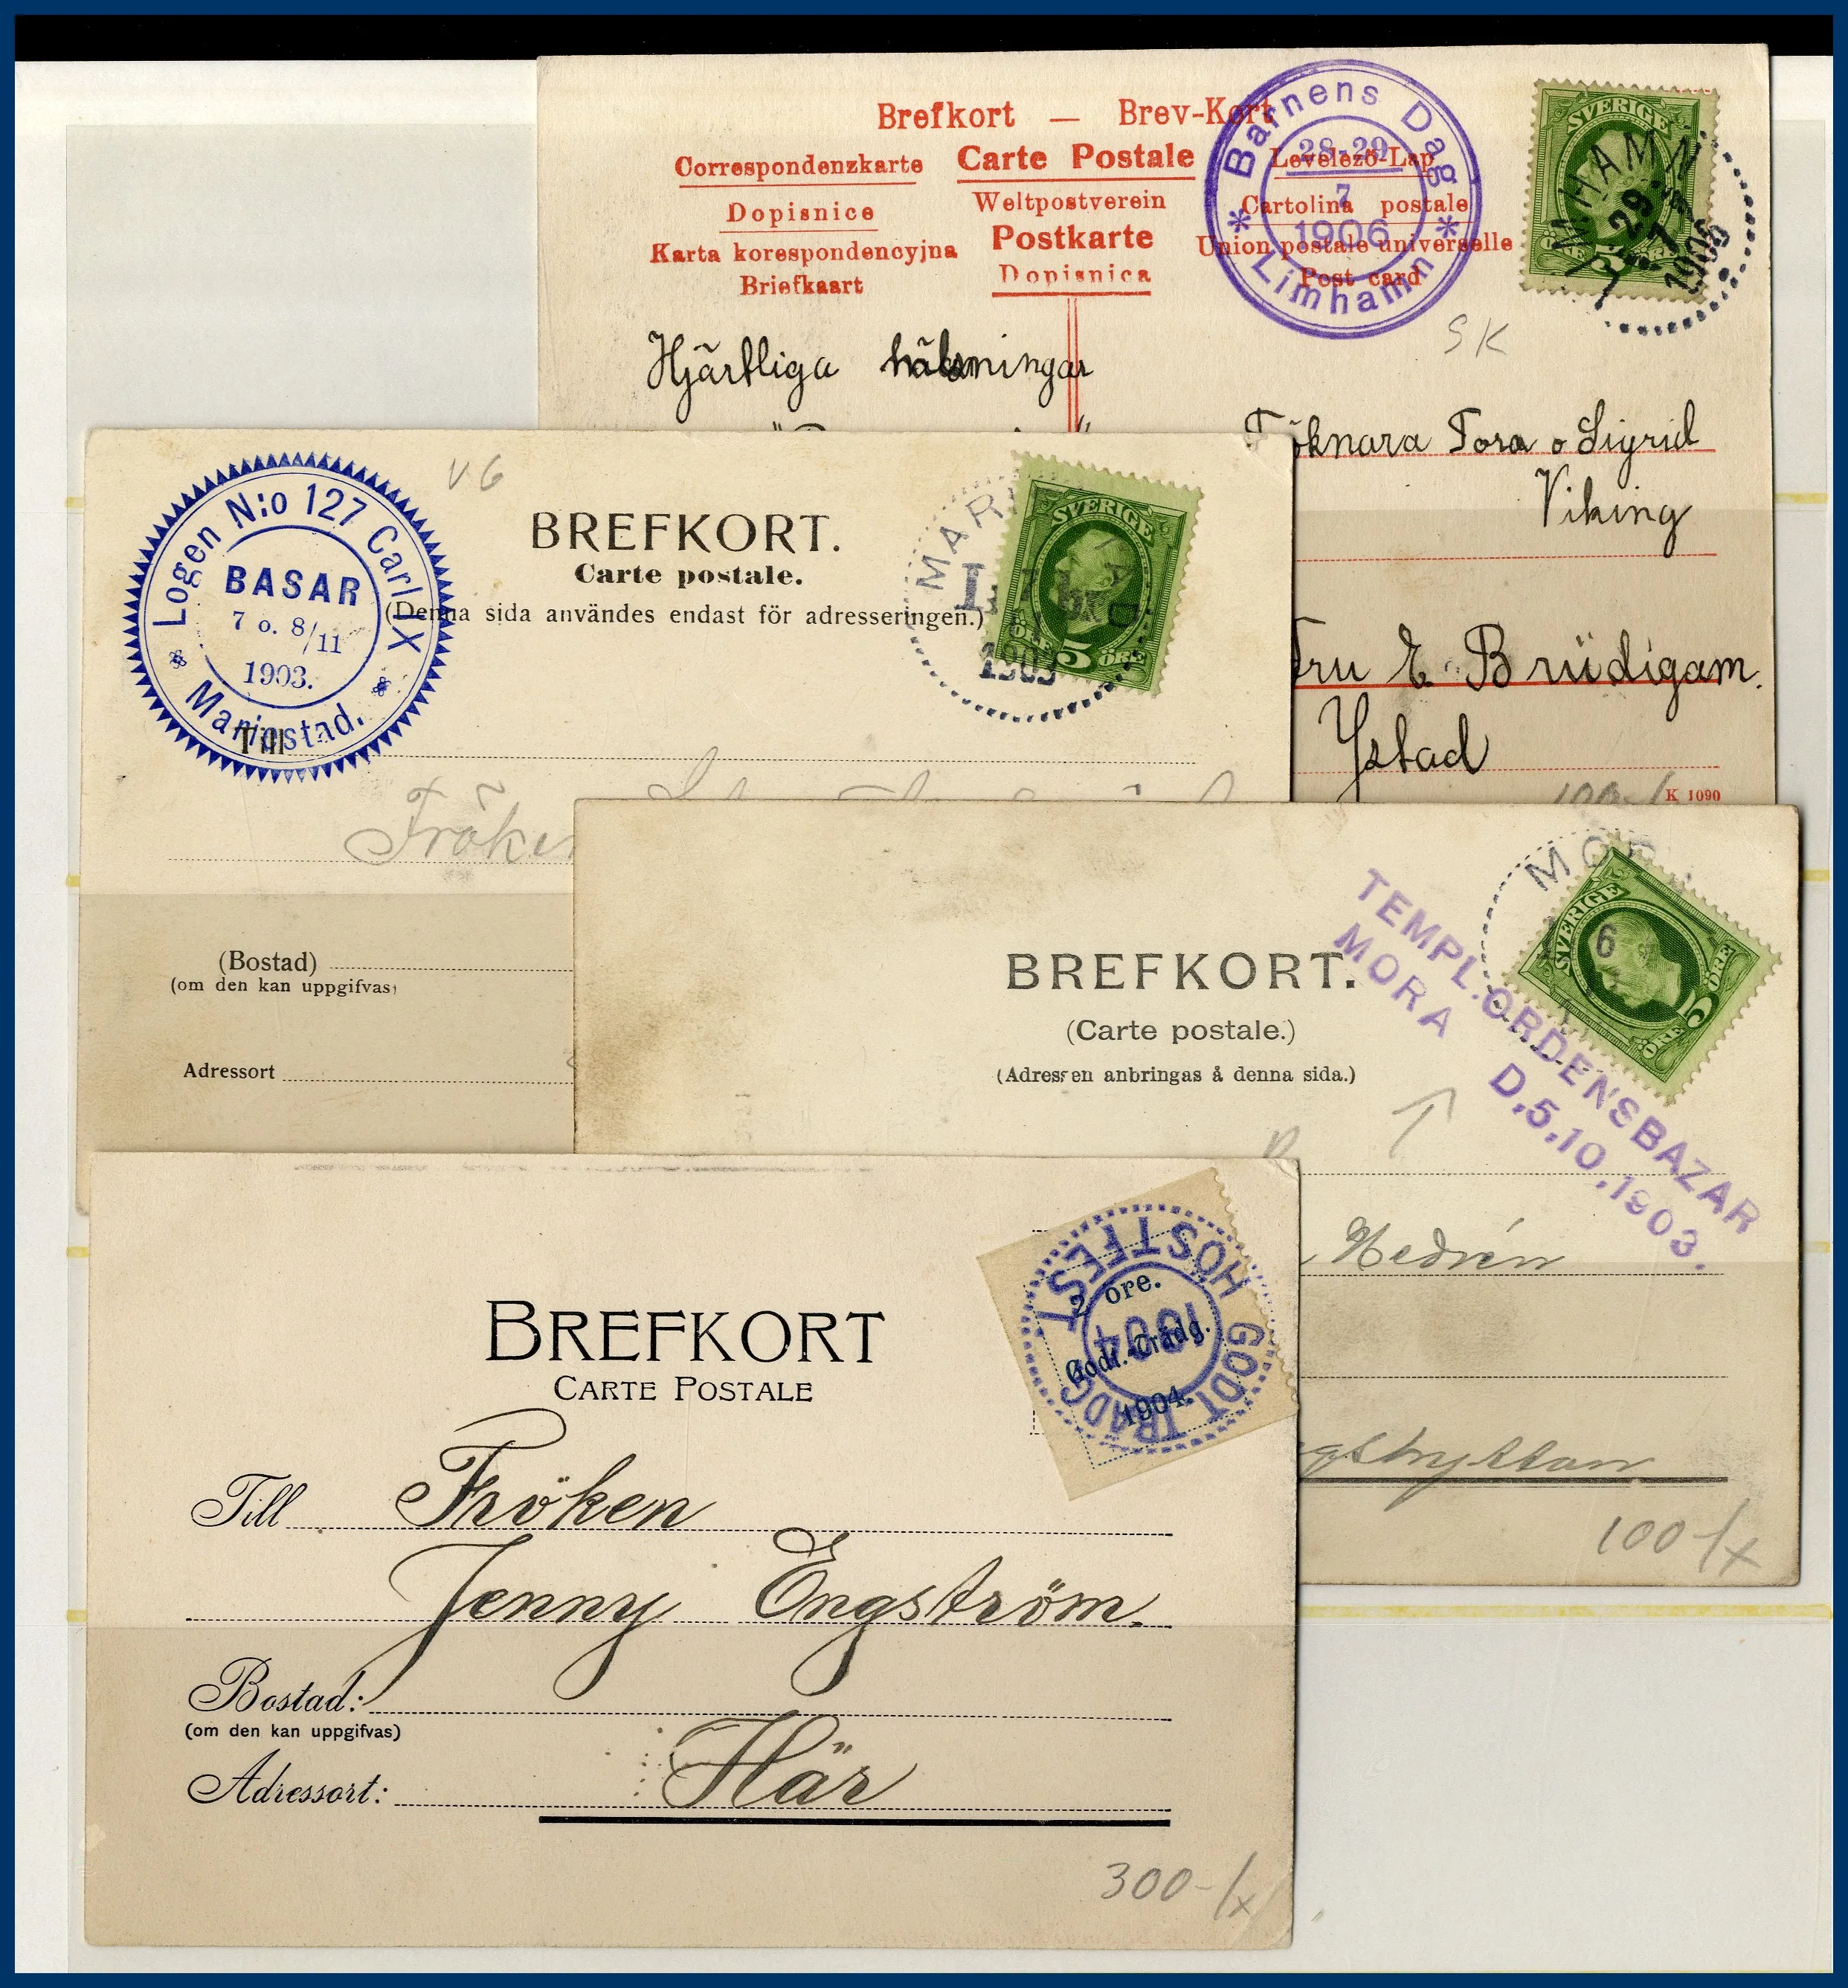 Brefkort — Brev-Kort
Correspondenzkarte Carte Postale Levelező-Lap
Dopisnice Weltpostverein Cartolina postale
Karta korespondencyjna Postkarte Union postale universelle
Briefkaart Dopisnica Post card
* Barnens Dag *
28-29
7
1906
Limhamn
SVERIGE
5
ÖRE
LIMHAMN
29
7
1906
SK
Hjärtliga hälsningar
Fröknara Tora o Sigrid
Viking
Fru E. Brüdigam.
Ystad
100-/
K 1090
Logen N:o 127 Carl IX
BASAR
7 o. 8/11
1903.
Mariestad.
V.G
BREFKORT.
Carte postale.
(Denna sida användes endast för adresseringen.)
SVERIGE
ÖRE 5 ÖRE
1903
Till
Fröken
(Bostad)
(om den kan uppgifvas)
Adressort
BREFKORT.
(Carte postale.)
(Adressen anbringas å denna sida.)
MORA
6
SVERIGE
5
ÖRE
ÖRE
TEMPL.ORDENSBAZAR
MORA D.5.10.1903.
Hedrén
100-/x
BREFKORT
CARTE POSTALE
2 öre.
Godt.-Trädg.
1904.
HÖSTFEST GODT TRÄDG
1904
Till Fröken
Jenny Engström.
Bostad:
(om den kan uppgifvas)
Adressort: Här
300-/x